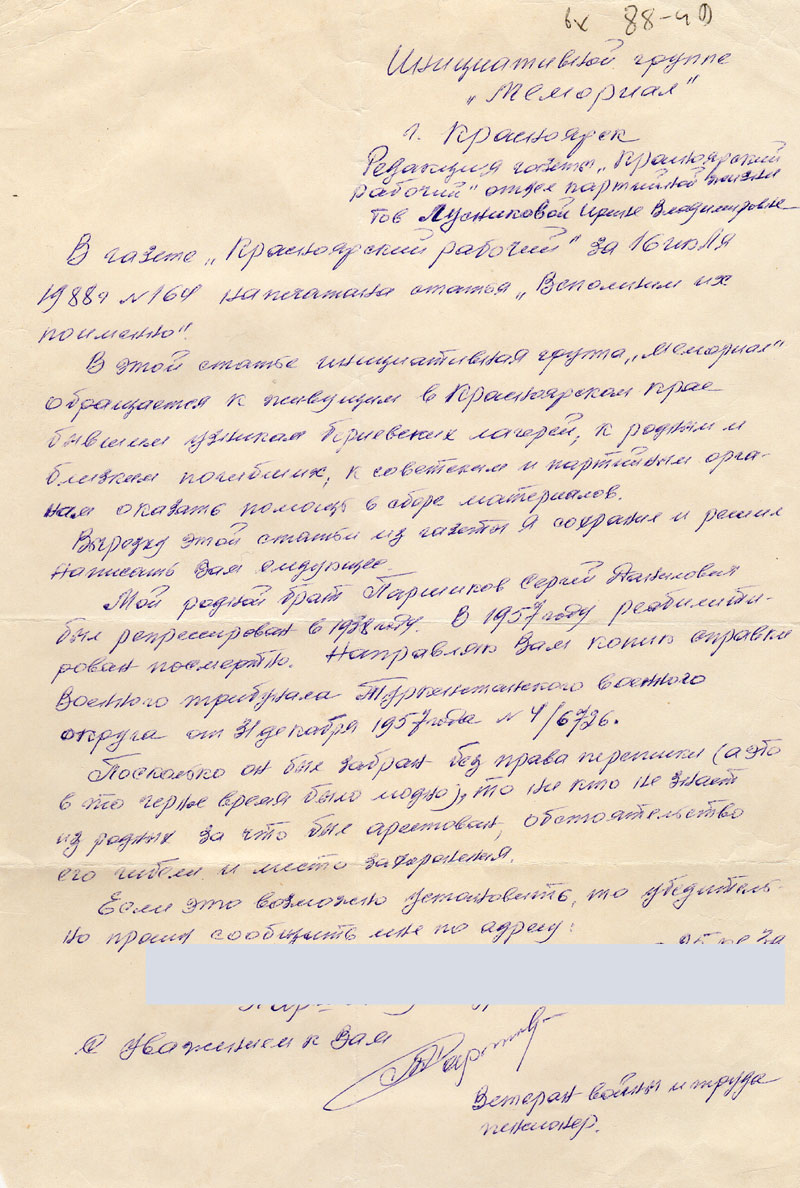 вх 88-4
Инициативной группе
„Мемориал"
г. Красноярск
Редакция газеты „Красноярский
рабочий" отдел партийной жизни
тов Лусниковой Ирине Владимировне
В газете „Красноярский рабочий" за 16 июля
1988г №164 напечатана статья „Вспомним их
поименно".
В этой статье инициативная группа „Мемориал"
обращается к живущим в Красноярском крае
бывшим узникам Бериевских лагерей, к родным и
близким погибших, к советским и партийным орга-
нам оказать помощь в сборе материалов.
Вырезку этой статьи из газеты я сохранил и решил
написать Вам следующее.
Мой родной брат Паршиков Сергей Данилович
был репрессирован в 1938 году. В 1957 году реабилити-
рован посмертно. Направляю Вам копию справки
Военного трибунала Туркестанского военного
округа от 31 декабря 1957 года №4/6726.
Поскольку он был забран без права переписки (а это
в то черное время было модно), то ни кто не знает
из родных за что был арестован, обстоятельство
его гибели и место захоронения.
Если это возможно установить, то убедитель-
но прошу сообщить мне по адресу:
С Уважением к Вам
Ветеран войны и труда
пенсионер.